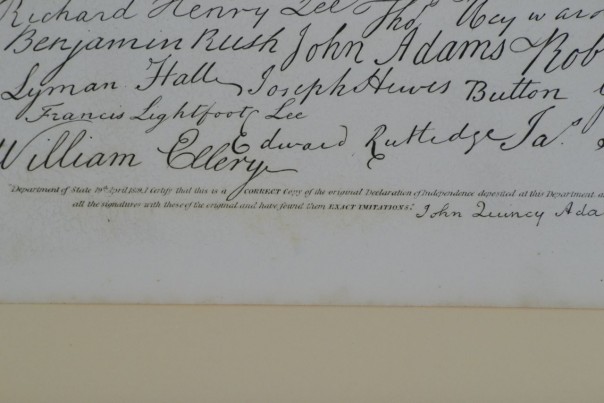 Richard Henry Lee Thos Heyward
Benjamin Rush John Adams Rob
Lyman Hall Joseph Hewes Button
Francis Lightfoot Lee
William Ellery Edward Rutledge Jas.
Department of State 19th April 1819. I Certify that this is a CORRECT Copy of the original Declaration of Independence deposited at this Department, a
all the signatures with those of the original and have found them EXACT IMITATIONS: John Quincy Ada